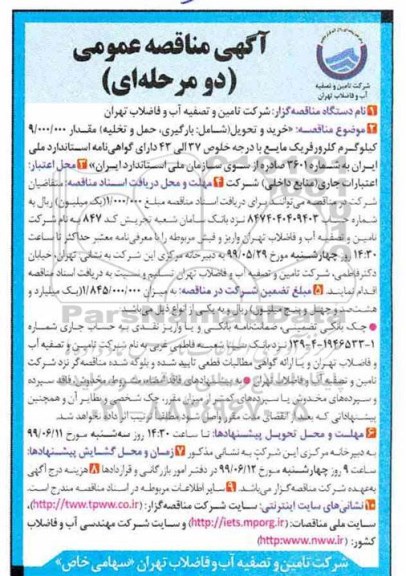 آگهی مناقصه عمومی
(دو مرحله‌ای)
شرکت تامین و تصفیه
آب و فاضلاب تهران
1 نام دستگاه مناقصه‌گزار: شرکت تامین و تصفیه آب و فاضلاب تهران
2 موضوع مناقصه: «خرید و تحویل (شامل: بارگیری، حمل و تخلیه) مقدار ۹/۰۰۰/۰۰۰
کیلوگرم کلروفریک مایع با درجه خلوص ۳۷ الی ۴۳ دارای گواهی‌نامه استاندارد ملی
ایران به شماره ۳۶۰۱ صادره از سوی سازمان ملی استاندارد ایران» 3 محل اعتبار:
اعتبارات جاری (منابع داخلی) شرکت 4 مهلت و محل دریافت اسناد مناقصه: متقاضیان
شرکت در مناقصه می‌توانند برای دریافت اسناد مناقصه مبلغ ۱/۰۰۰/۰۰۰ (یک میلیون) ریال به
شماره حساب ۸۴۷۴۰۴۰۴۰۹۴۰۳ نزد بانک سامان شعبه تجریش کد ۸۴۷ به نام شرکت
تامین و تصفیه آب و فاضلاب تهران واریز و فیش مربوطه را با معرفی‌نامه معتبر حداکثر تا ساعت
۱۴:۳۰ روز چهارشنبه مورخ ۹۹/۰۵/۲۹ به دبیرخانه مرکزی این شرکت به نشانی: تهران، خیابان
دکتر فاطمی، شرکت تامین و تصفیه آب و فاضلاب تهران تسلیم و نسبت به دریافت اسناد مناقصه
اقدام نمایند. 5 مبلغ تضمین شرکت در مناقصه: به میزان ۱/۸۴۵/۰۰۰/۰۰۰ (یک میلیارد و
هشتصد و چهل و پنج میلیون) ریال و به یکی از انواع ذیل می‌باشد:
• چک بانکی تضمینی، ضمانت‌نامه بانکی و یا واریز نقدی به حساب جاری شماره
نزد بانک سینا شعبه فاطمی غربی به نام شرکت تامین و تصفیه آب
و فاضلاب تهران و یا ارائه گواهی مطالبات قطعی تایید شده و بلوکه شده مناقصه‌گر نزد شرکت
تامین و تصفیه آب و فاضلاب تهران • به پیشنهادهای فاقد امضاء، مشروط، مخدوش، فاقد سپرده
و سپرده‌های مخدوش یا سپرده‌های کمتر از میزان مقرر، چک شخصی و نظایر آن و همچنین
پیشنهاداتی که بعد از انقضای مدت مقرر واصل شود مطلقا ترتیب اثر داده نخواهد شد.
6 مهلت و محل تحویل پیشنهادها: تا ساعت ۱۴:۳۰ روز سه‌شنبه مورخ ۹۹/۰۶/۱۱
به دبیرخانه مرکزی این شرکت به نشانی مذکور 7 زمان و محل گشایش پیشنهادها:
ساعت ۹ روز چهارشنبه مورخ ۹۹/۰۶/۱۲ در دفتر امور بازرگانی و قراردادها 8 هزینه درج آگهی
به‌عهده شرکت مناقصه‌گزار می‌باشد. 9 سایر اطلاعات مربوطه در اسناد مناقصه مندرج است.
10 نشانی‌های سایت اینترنتی: سایت شرکت مناقصه‌گزار: (http://www.tpww.co.ir)،
سایت ملی مناقصات: (http://iets.mporg.ir) و سایت شرکت مهندسی آب و فاضلاب
کشور: (http:www.nww.ir)
شرکت تامین و تصفیه آب و فاضلاب تهران «سهامی خاص»